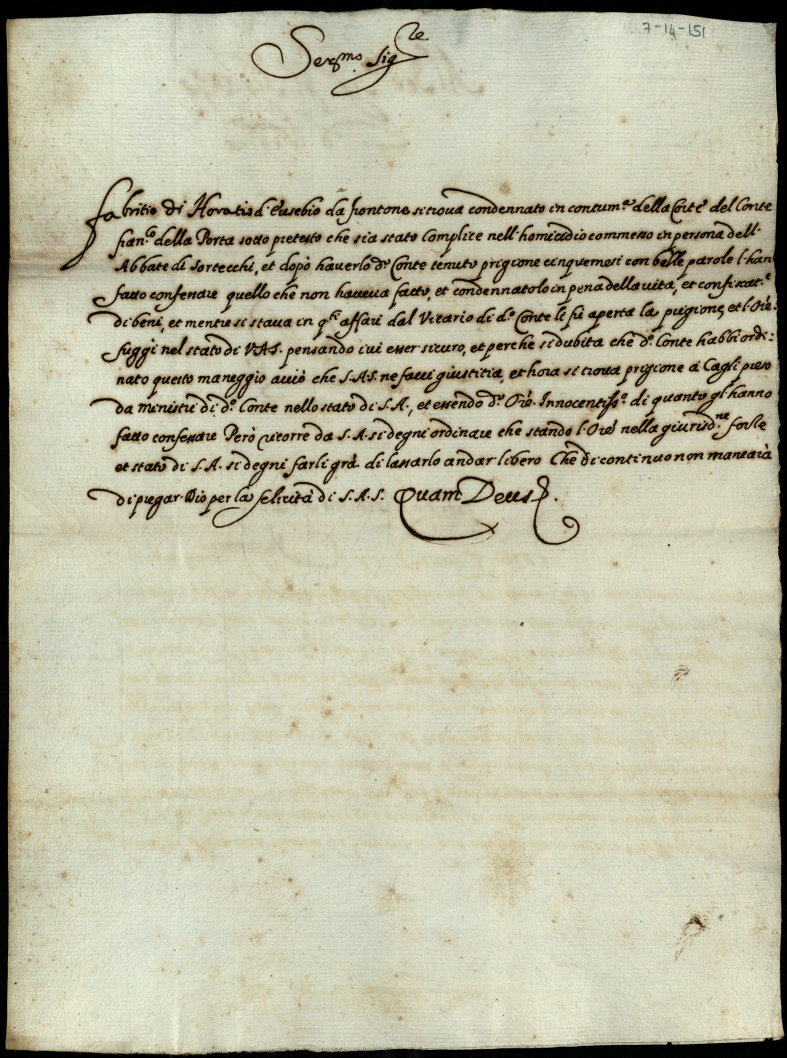 7-14-151
Ser.mo Sig.re
Fabritio di Horatio d'Eusebio da frontone si trova condennato in contum.a della Corte del Conte
fran.co della Porta sotto pretesto che sia stato Complice nell'homicidio commesso in persona dell'
Abbate di Sortecchi, et dopò haverlo d.o Conte tenuto prigione cinque mesi con belle parole l'han
fatto confessare quello che non haveva fatto, et condennatolo in pena della vita, et confiscat.e
di beni, et mentre si stava in q.ti affari dal Vicario di d.o Conte le fù aperta la prigione, et l'Ore.
fuggi nel stato di V.A.S. pensando ivi esser sicuro, et perche si dubita che d.o Conte habbi ordi:
nato questo maneggio acciò che S.A.S. ne facci giustitia, et hora si trova prigione à Cagli preso
da ministri di d.o Conte nello stato di S.A., et essendo d.o Ore. Innocentiss.o di quanto gl'hanno
fatto confessare Però ricorre da S.A. si degni ordinare che stando l'Ore nella giurisd.ne forse
et stato di S.A. si degni farli grã. di lassarlo andar libero Che di continuo non mancarà
di pregar Dio per la felicità di S.A.S. Quam Deus